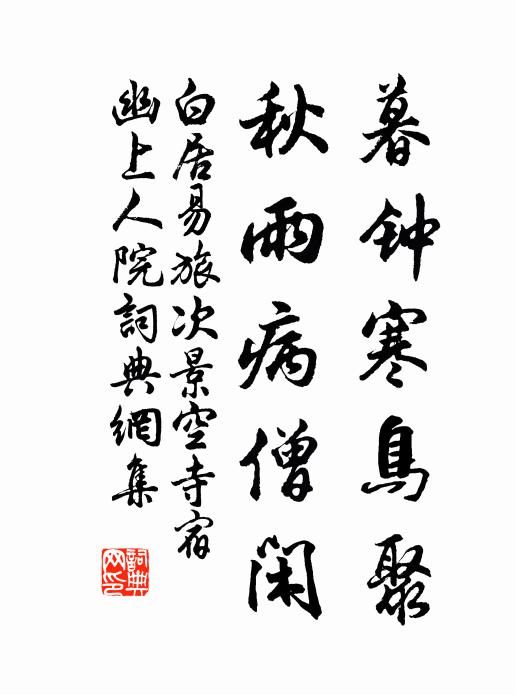 暮钟寒鳥聚
秋雨病僧闲
白居易旅次景空寺宿
幽上人院詞典網集
詞典
网印